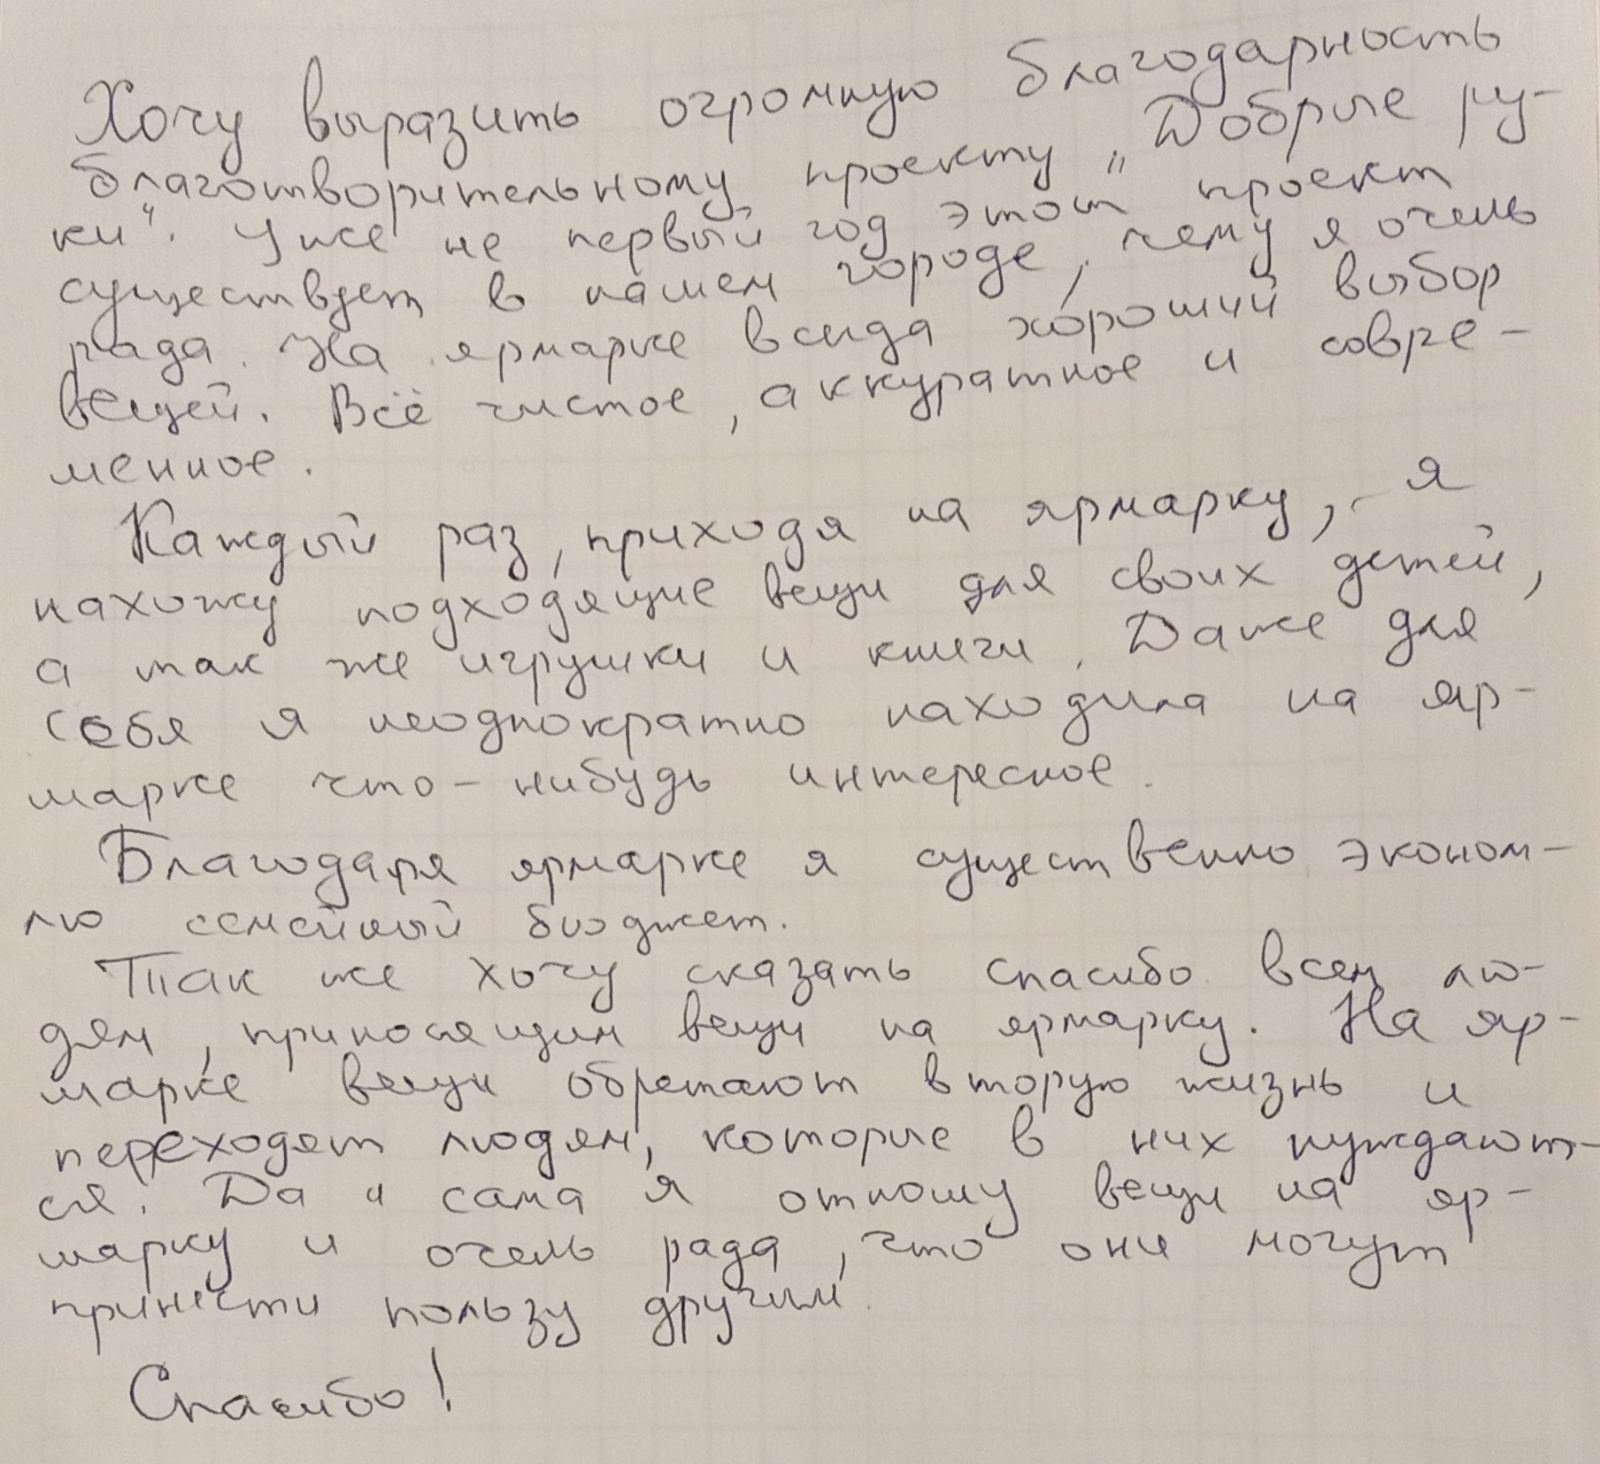 Хочу выразить огромную благодарность
благотворительному проекту „Добрые ру-
ки“. Уже не первый год этот проект
существует в нашем городе, чему я очень
рада. На ярмарке всегда хороший выбор
вещей. Всё чистое, аккуратное и совре-
менное.
Каждый раз, приходя на ярмарку, я
нахожу подходящие вещи для своих детей,
а так же игрушки и книги. Даже для
себя я неоднократно находила на яр-
марке что-нибудь интересное.
Благодаря ярмарке я существенно эконом-
лю семейный бюджет.
Так же хочу сказать спасибо всем лю-
дям, приносящим вещи на ярмарку. На яр-
марке вещи обретают вторую жизнь и
переходят людям, которые в них нуждают-
ся. Да и сама я отношу вещи на яр-
марку и очень рада, что они могут
принести пользу другим.
Спасибо!